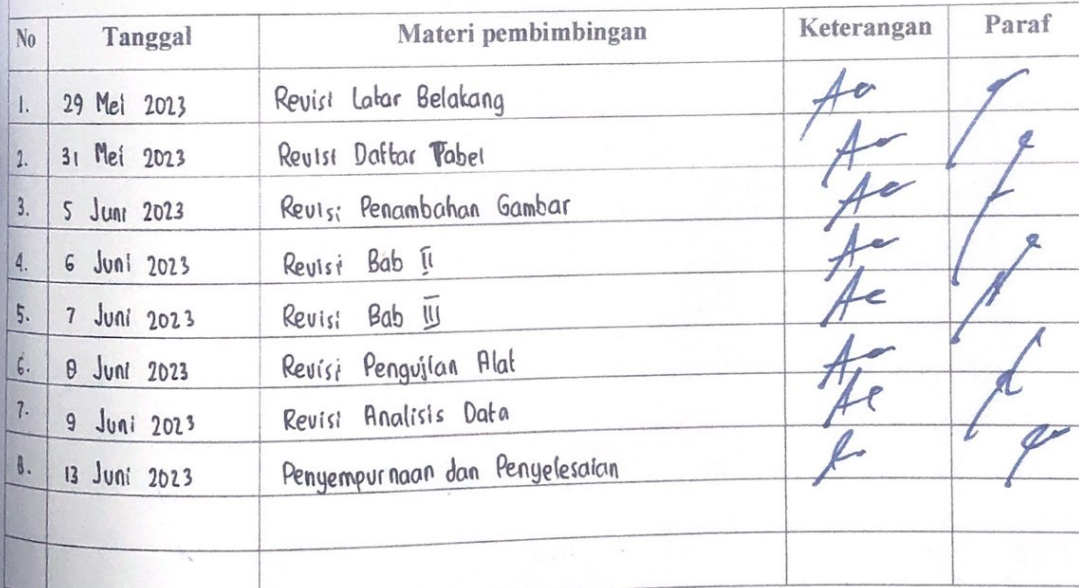 No Tanggal Materi pembimbingan Keterangan Paraf
1. 29 Mei 2023 Revisi Latar Belakang
2. 31 Mei 2023 Revisi Daftar Tabel
3. 5 Juni 2023 Revisi Penambahan Gambar
4. 6 Juni 2023 Revisi Bab II
5. 7 Juni 2023 Revisi Bab III
6. 8 Juni 2023 Revisi Pengujian Alat
7. 9 Juni 2023 Revisi Analisis Data
8. 13 Juni 2023 Penyempurnaan dan Penyelesaian